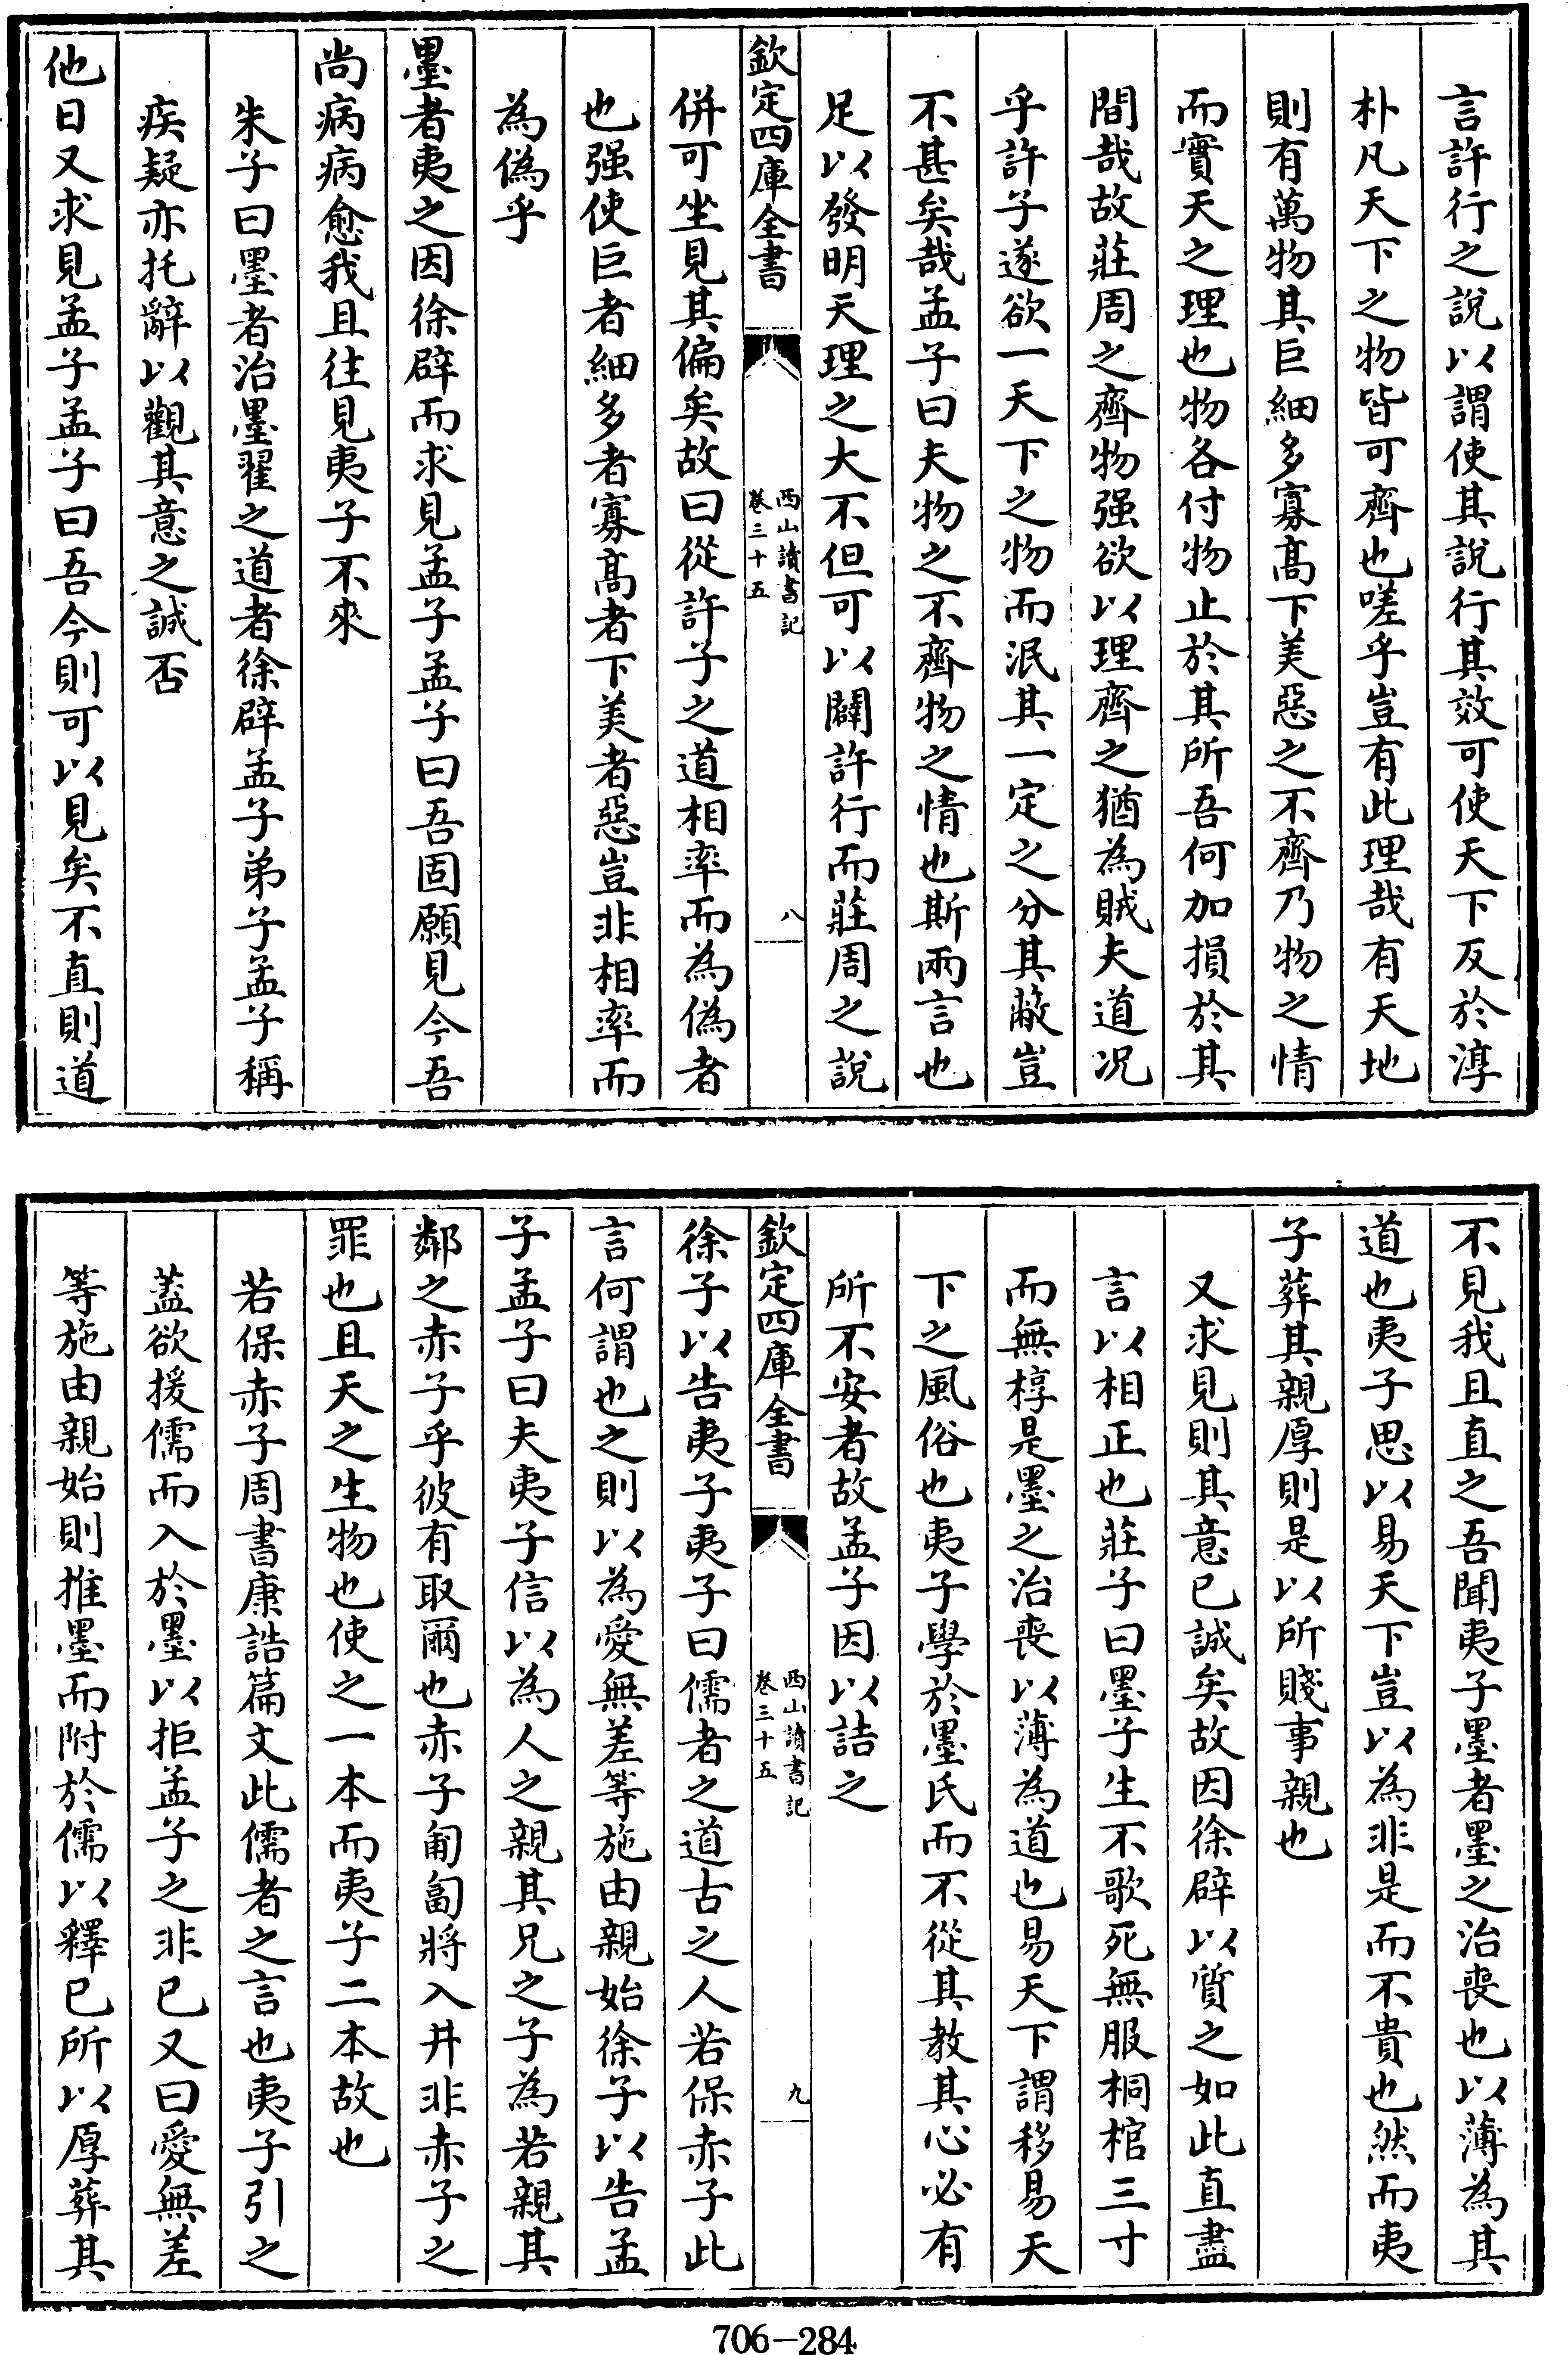 言許行之說以謂使其說行其效可使天下反於淳
朴凡天下之物皆可齊也嗟乎豈有此理哉有天地
則有萬物其巨細多寡髙下美惡之不齊乃物之情
而實天之理也物各付物止於其所吾何加損於其
間哉故莊周之齊物强欲以理齊之猶為賊夫道况
乎許子遂欲一天下之物而泯其一定之分其蔽豈
不甚矣哉孟子曰夫物之不齊物之情也斯兩言也
足以發明天理之大不但可以闢許行而莊周之說
欽定四庫全書
西山讀書記
卷三十五
八
併可坐見其偏矣故曰從許子之道相率而為偽者
也强使巨者細多者寡髙者下美者惡豈非相率而
為偽乎
墨者夷之因徐辟而求見孟子孟子曰吾固願見今吾
尚病病愈我且往見夷子不來
朱子曰墨者治墨翟之道者徐辟孟子弟子孟子稱
疾疑亦托辭以觀其意之誠否
他日又求見孟子孟子曰吾今則可以見矣不直則道
不見我且直之吾聞夷子墨者墨之治喪也以薄為其
道也夷子思以易天下豈以為非是而不貴也然而夷
子葬其親厚則是以所賤事親也
又求見則其意已誠矣故因徐辟以質之如此直盡
言以相正也莊子曰墨子生不歌死無服桐棺三寸
而無椁是墨之治喪以薄為道也易天下謂移易天
下之風俗也夷子學於墨氏而不從其教其心必有
所不安者故孟子因以詰之
欽定四庫全書
西山讀書記
卷三十五
九
徐子以告夷子夷子曰儒者之道古之人若保赤子此
言何謂也之則以為愛無差等施由親始徐子以告孟
子孟子曰夫夷子信以為人之親其兄之子為若親其
鄰之赤子乎彼有取爾也赤子匍匐將入井非赤子之
罪也且天之生物也使之一本而夷子二本故也
若保赤子周書康誥篇文此儒者之言也夷子引之
蓋欲援儒而入於墨以拒孟子之非已又曰愛無差
等施由親始則推墨而附於儒以釋已所以厚葬其
706-284